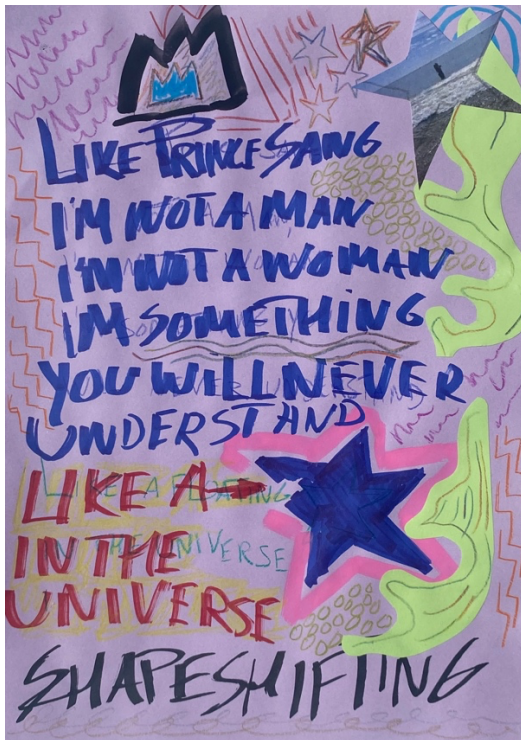 LIKE PRINCE SANG
I'M NOT A MAN
I'M NOT A WOMAN
I'M SOMETHING
YOU WILL NEVER
UNDERSTAND
LIKE A
IN THE
UNIVERSE
SHAPESHIFTING